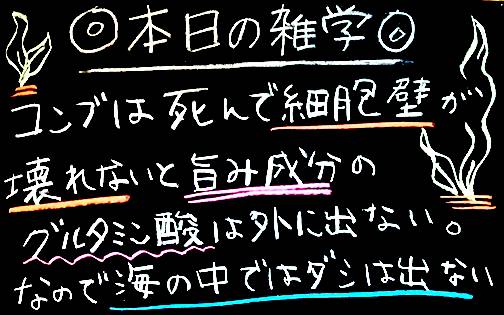 ◎本日の雑学◎
コンブは死んで細胞壁が
壊れないと旨み成分の
グルタミン酸は外に出ない。
なので海の中ではダシは出ない